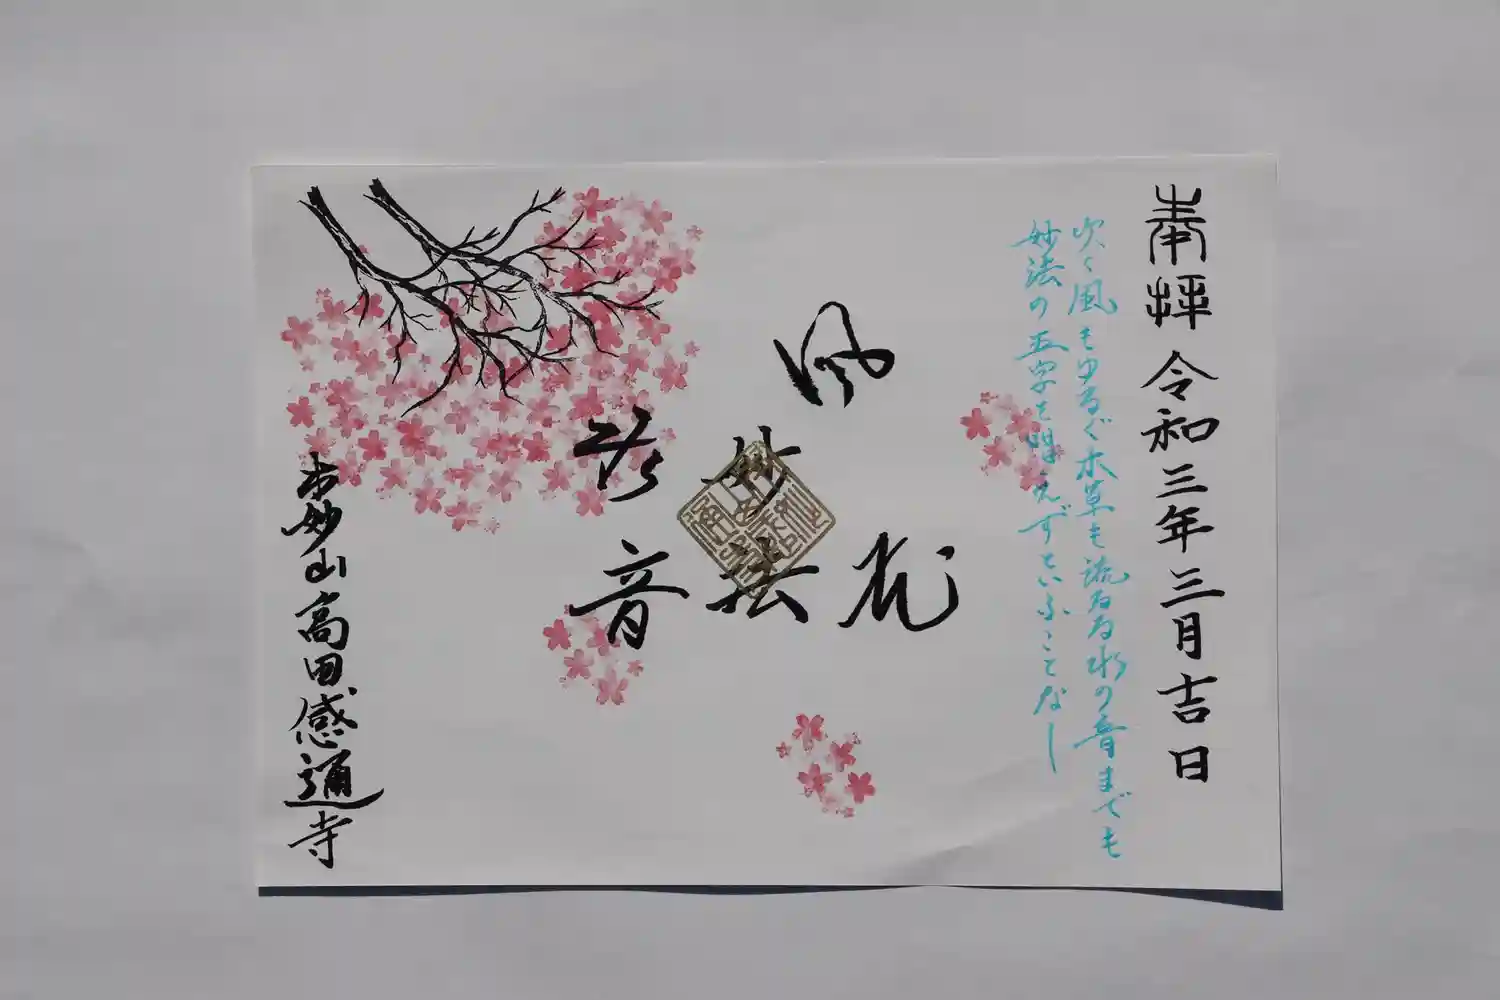 奉拝 令和三年三月吉日
吹く風もゆるぐ木草も流るる水の音までも
妙法の五字を唱えずといふことなし
風
花
妙法
音
本妙山高田感通寺